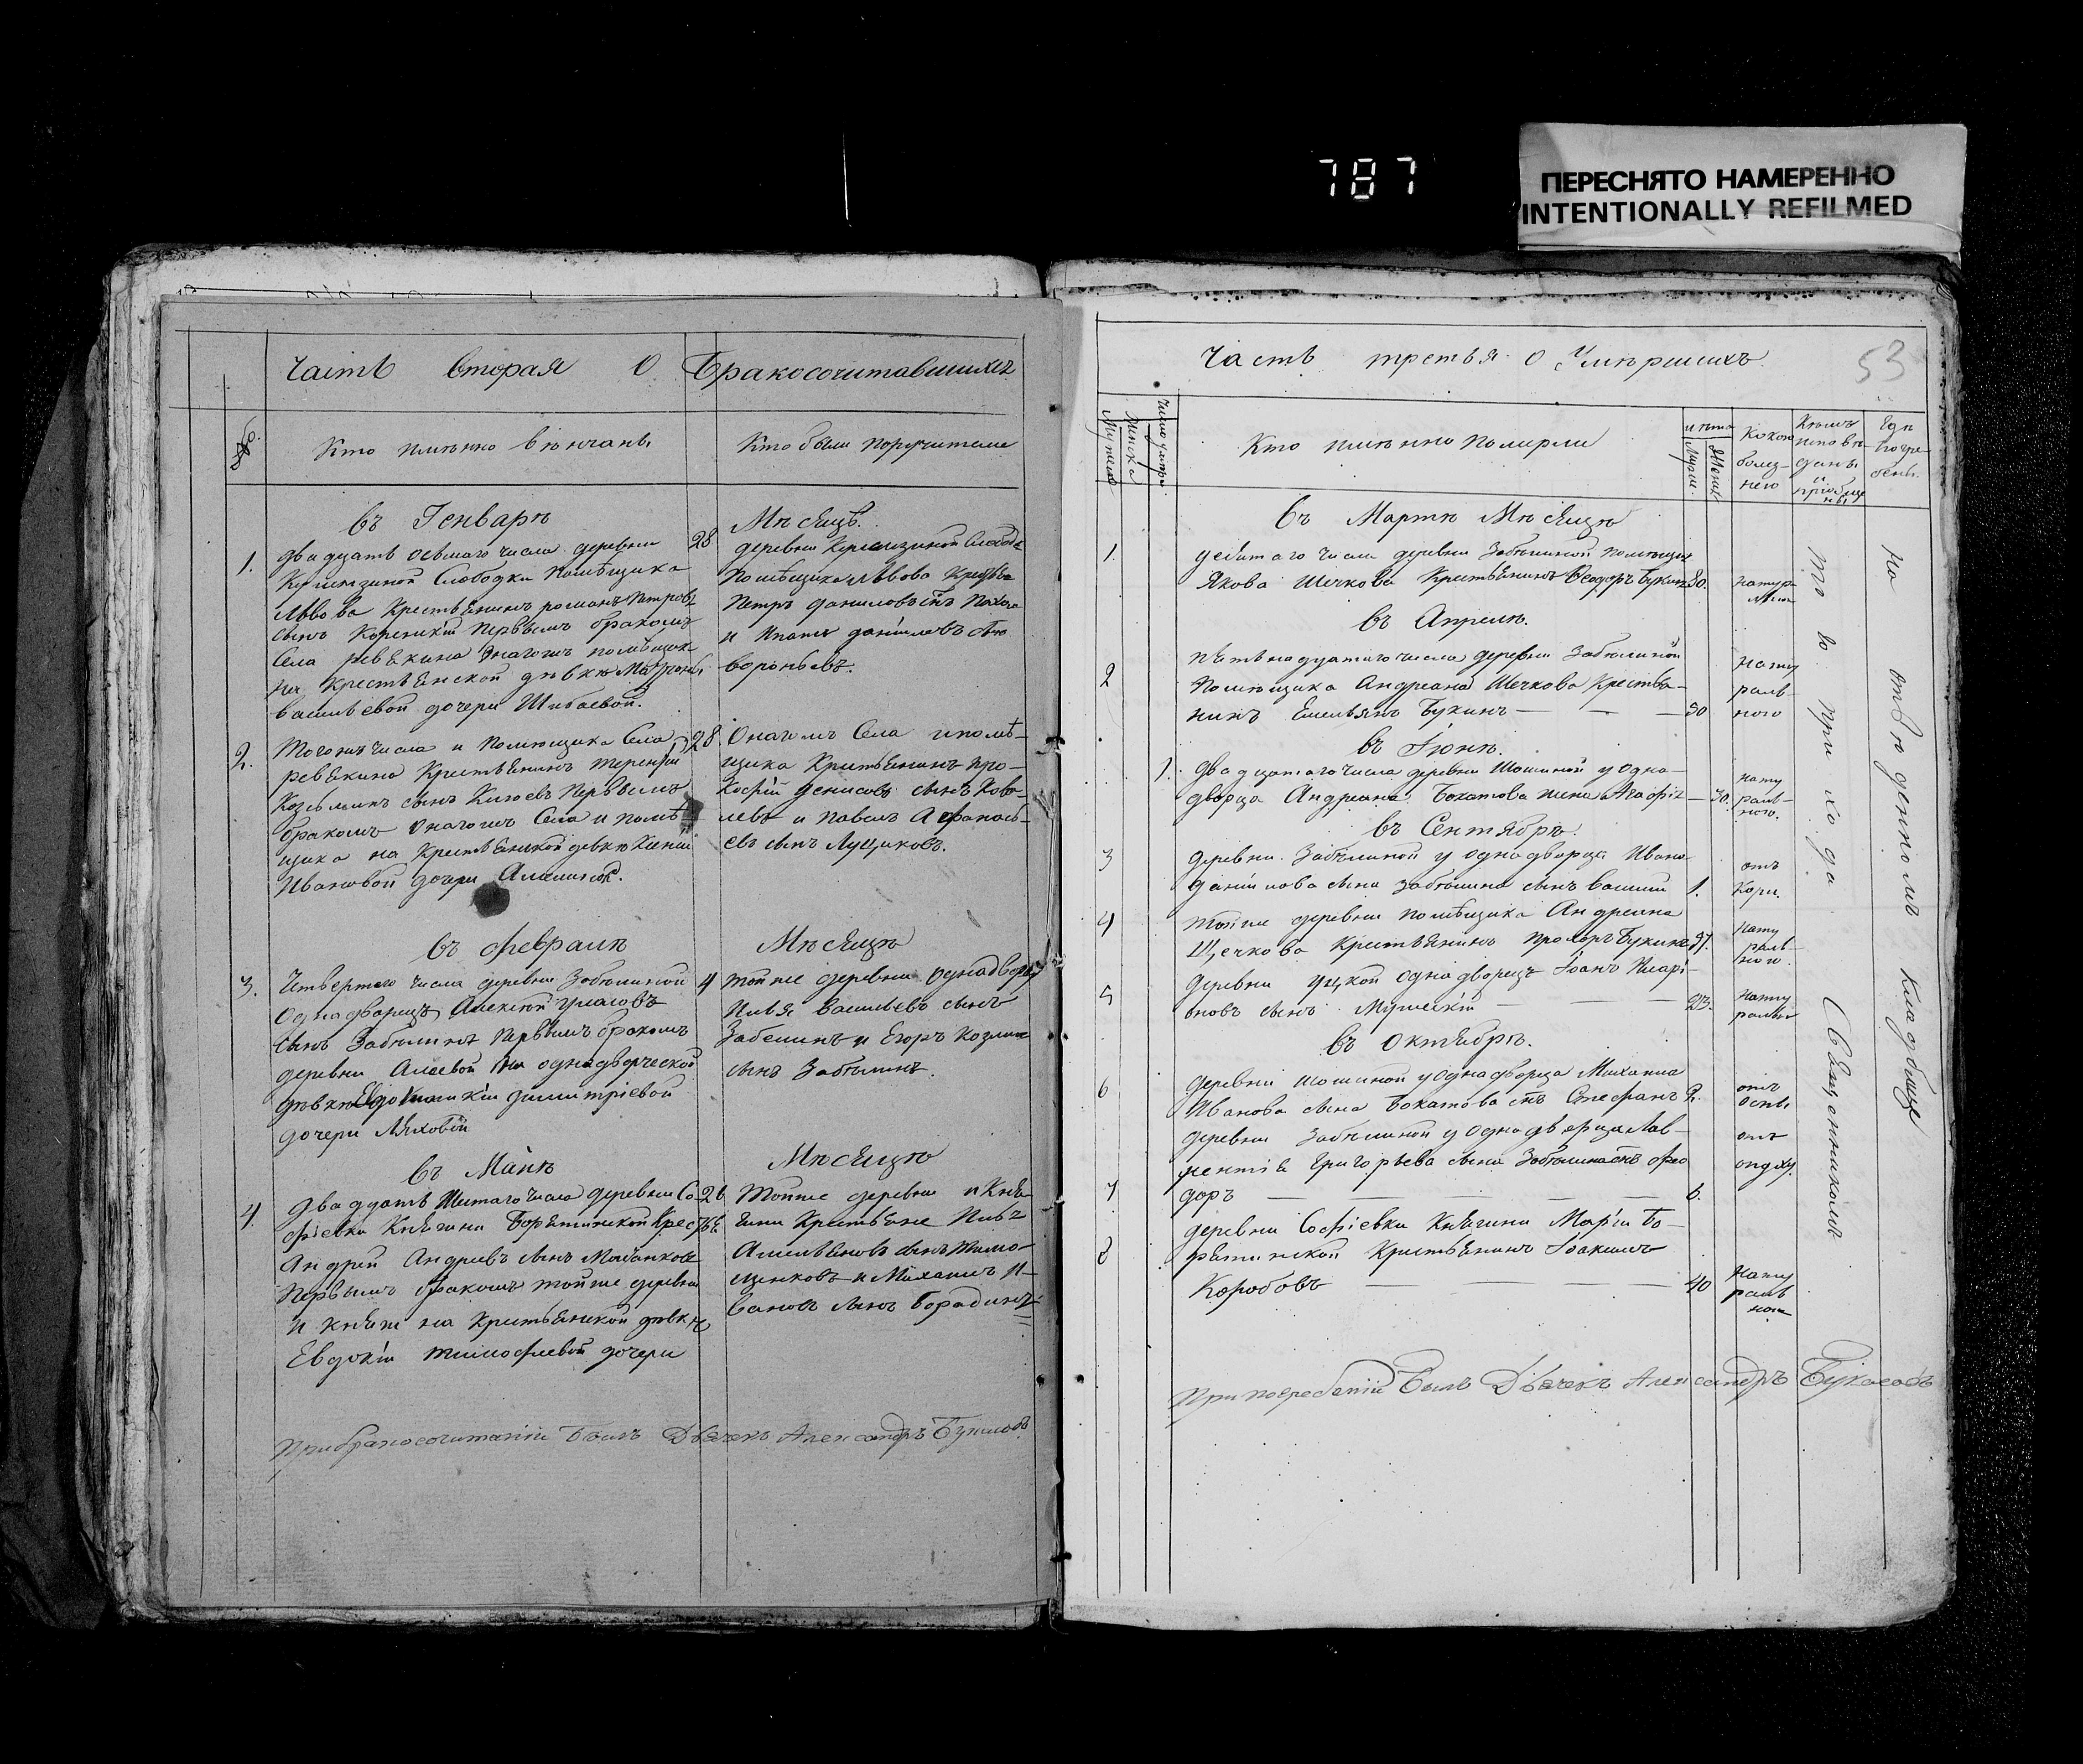 787
ПЕРЕСНЯТО НАМЕРЕННО
INTENTIONALLY REFILMED
Часть вторая о Бракосочитавшихъ
№.
Кто имѣнно вѣнчаны
Кто были поручители
въ Генварѣ
Мѣсяцѣ.
1.
двадцать осьмаго числа деревни
слободки помѣщика
Львова крестьянинъ романъ Петровъ
сынъ первымъ бракомъ
села ревякина
на крестьянской дѣвкѣ Матроны
васильевой дочери Шибаевой.
28
деревни
Помѣщика Львова
Петръ даниловъ
и даниловъ
воробьевъ.
2.
Тогожъ числа и Помѣщика Села
ревякина Крестьянинъ терентий
Козьминъ сынъ первымъ
бракомъ оногожъ Села и помѣ
щика на крестьянской девкѣ
Ивановой дочери
28.
Оногожъ Села и помѣ-
щика Крестьянинъ про-
кофий денисовъ сынъ Кова-
левъ и павелъ Афонась-
евъ сынъ Лущиковъ.
въ февралѣ
Мѣсяцѣ
3.
Четвертого числа деревни Забѣлиной
однодворецъ Алексѣй
сынъ Забѣлинъ первымъ бракомъ
деревни на однодворческой
дѣвкѣ димитріевой
дочери Ляховой
4
тойже деревни
Илья Васильевъ сынъ
Забелинъ и Егоръ Козминъ
сынъ Забѣлинъ.
въ Маiѣ
Мѣсяцѣ
4.
двадцать Шетаго числа деревни Со-
фіевки Княгини Борятинской
Андрей Андреевъ сынъ
Первымъ бракомъ тойже деревни
и княги на крестьянской дѣвкѣ
Евдокіи тимофеевой дочери
26
Тойже деревни и Кня-
гини Крестьяне
сынъ Тимо-
щенковъ и Михаилъ И-
вановъ сынъ Бородинъ
При бракосочитаніи былъ Дьячекъ Александръ
Часть третья о Умѣршихъ
53
Мужска
Женска
Число умерш.
Кто имѣнно Померли
и лѣта
Мужс.
Женс.
Какою
болез-
нею
Кѣмъ
исповѣ-
даны
и
приобще
ны
Где
погре-
бены.
въ Мартѣ Мѣсяцѣ
1.
десятаго числа деревни Забѣлиной помѣщика
Якова Щечкова Крестьянинъ Ѳеодоръ Букинъ
80.
натура
въ Апрелѣ.
2
пятьнадцатаго числа деревни Забѣлиной
Помѣщика Андреана Щечкова Крестья-
нинъ Емельянъ Букинъ — — —
50
нату
раль-
ною
въ Iюнѣ.
1.
двадцатаго числа деревни Шошиной у одно-
дворца Андреана Бокатова жена Агафія —
30.
нату
раль-
ною.
въ Сентябрѣ.
3
деревни Забѣлиной у однодворца Ивана
даніилова сына Забѣлина сынъ Василий
1.
отъ
Кори.
4
тойже деревни помѣщика Андреана
Щечкова Крестьянинъ прохоръ Букинъ
57.
нату
раль-
ною.
5
деревни однодворецъ Iоанъ Илари-
оновъ сынъ — — —
23.
Нату
въ Октябрѣ.
6
деревни шошиной у однодворца Михаила
Иванова сына Бокатова снъ Стефанъ
2.
отъ
оспы
7
деревни Забѣлиной у однодворца Лав-
рентія Григорьева сына Забѣлина снъ Фео
доръ — — — —
6.
отъ
8
деревни Софіевки Княгини Маріи Бо-
рятинской Крестьянинъ Iоакимъ
Коробовъ — — —
40
Нату
раль
ною
Тогожъ прихода Священникомъ
На отведенномъ Кладбище
При погребеніи былъ Дьячекъ Александръ